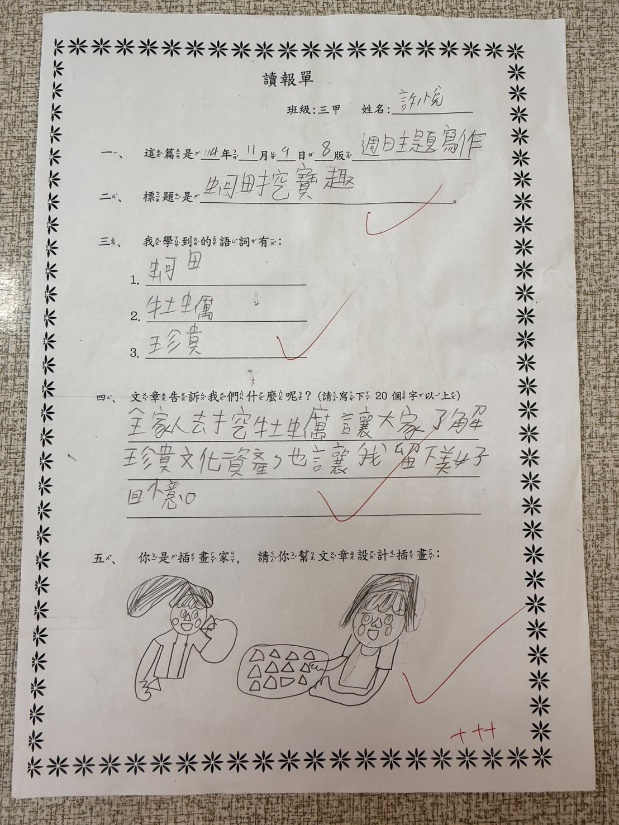 讀報單
班級:三甲 姓名:許悅
一、 這篇是114年11月9日8版 週日主題寫作
二、 標題是 蚵田挖寶趣。
三、 我學到的語詞有:
1. 蚵田
2. 牡蠣
3. 珍貴
四、 文章告訴我們什麼呢?(請寫下 20 個字以上)
全家人去挖牡蠣讓大家了解
珍貴文化資產,也讓我留下美好
回憶。
五、 你是插畫家, 請你幫文章設計插畫:
+++